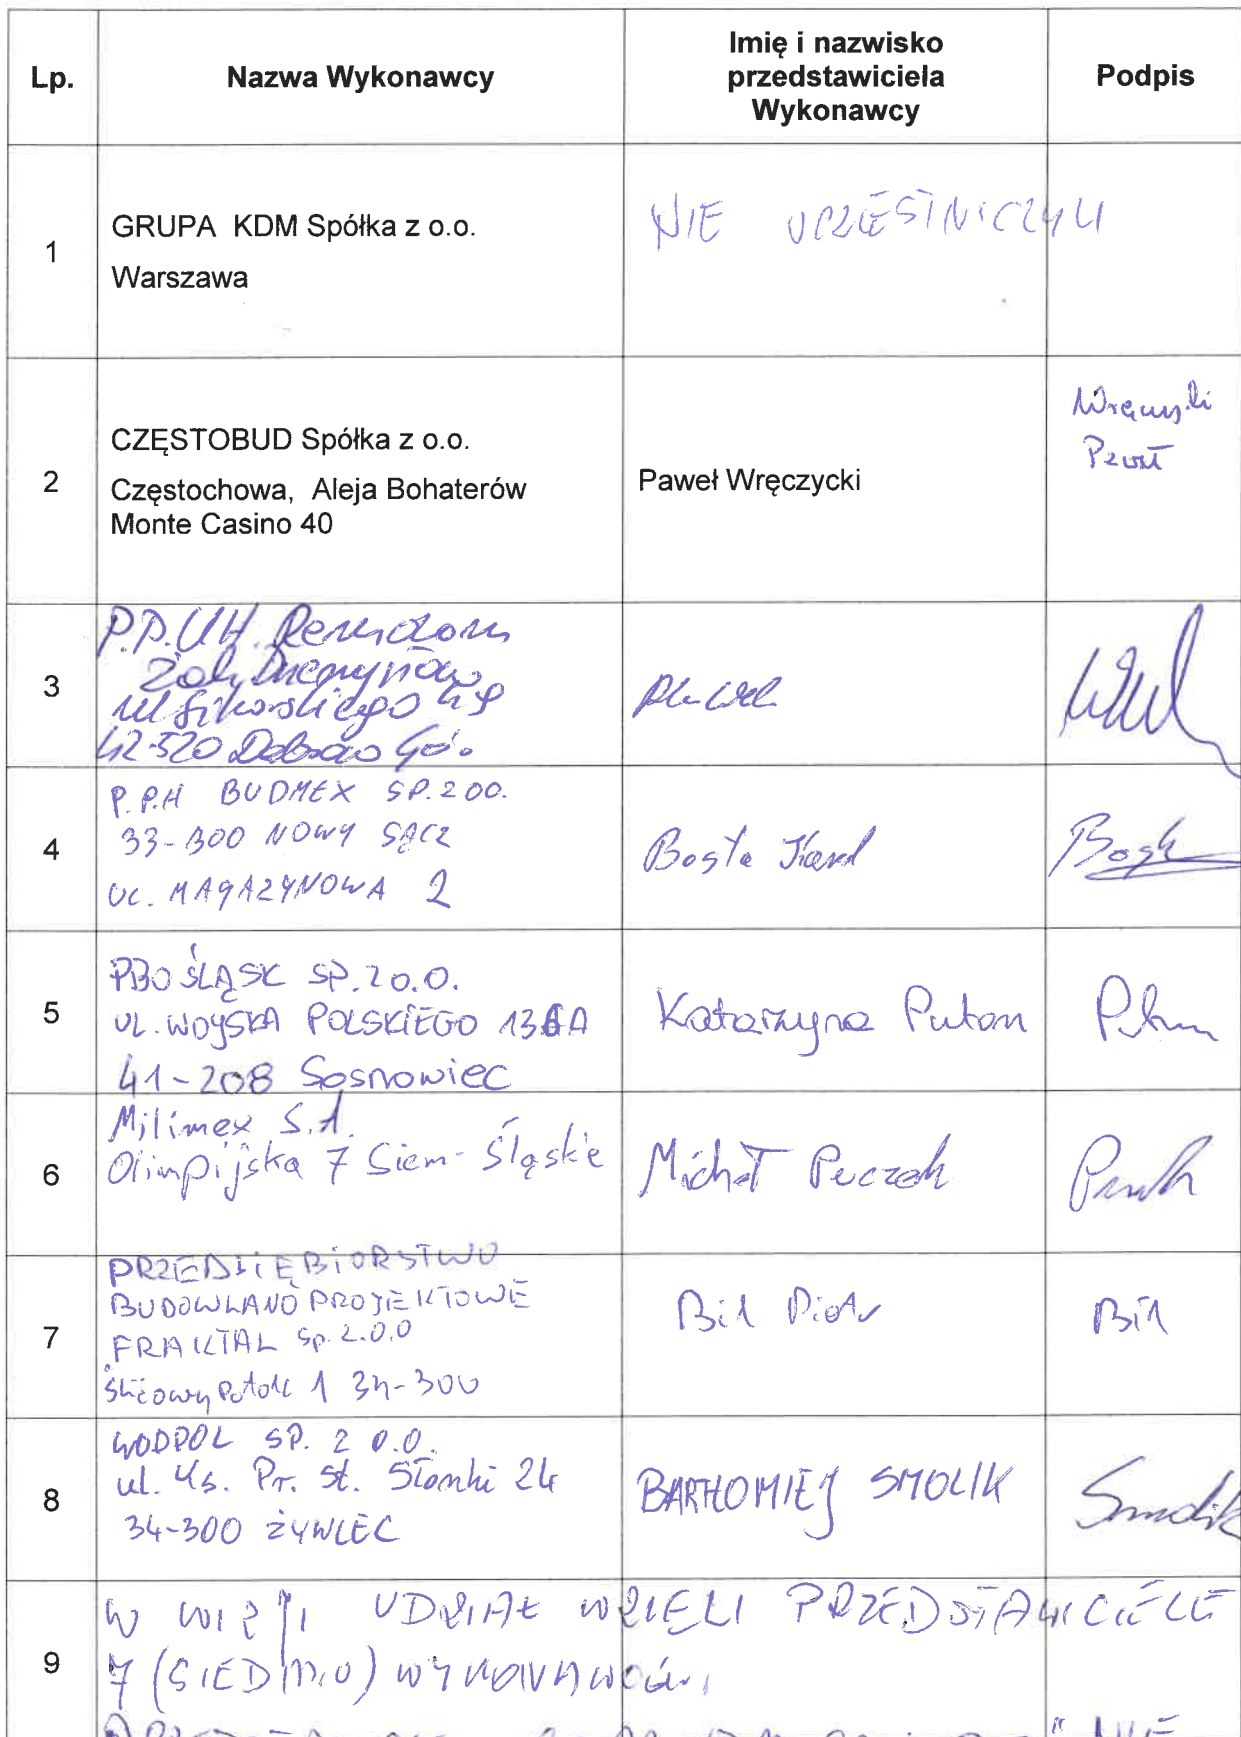 Lp.
Nazwa Wykonawcy
Imię i nazwisko
przedstawiciela
Wykonawcy
Podpis
1
GRUPA KDM Spółka z o.o.
Warszawa
NIE UCZESTNICZYLI
2
CZĘSTOBUD Spółka z o.o.
Częstochowa, Aleja Bohaterów
Monte Casino 40
Paweł Wręczycki
Wręczycki
Paweł
3
P.P.UH.
ul Sikorskiego 49
42-520
4
P.P.H BUDMEX SP. Z OO.
33-300 NOWY SĄCZ
UL. MAGAZYNOWA 2
5
PBO ŚLĄSK SP. Z O.O.
UL. WOJSKA POLSKIEGO
41-208 Sosnowiec
Katarzyna Puton
6
Milimex S.A.
Olimpijska 7 Siem- Śląskie
Michał
7
PRZEDSIĘBIORSTWO
BUDOWLANO PROJEKTOWE
FRAKTAL Sp. z.o.o
1 34-300
Piotr
8
WODPOL SP. Z O.O.
ul. Ks. Pr. St. Słonki 24
34-300 ŻYWIEC
BARTŁOMIEJ SMOLIK
Smolik
9
W WIZJI UDZIAŁ WZIELI PRZEDSTAWICIELE
7 (SIEDMIU) WYKONAWCÓW